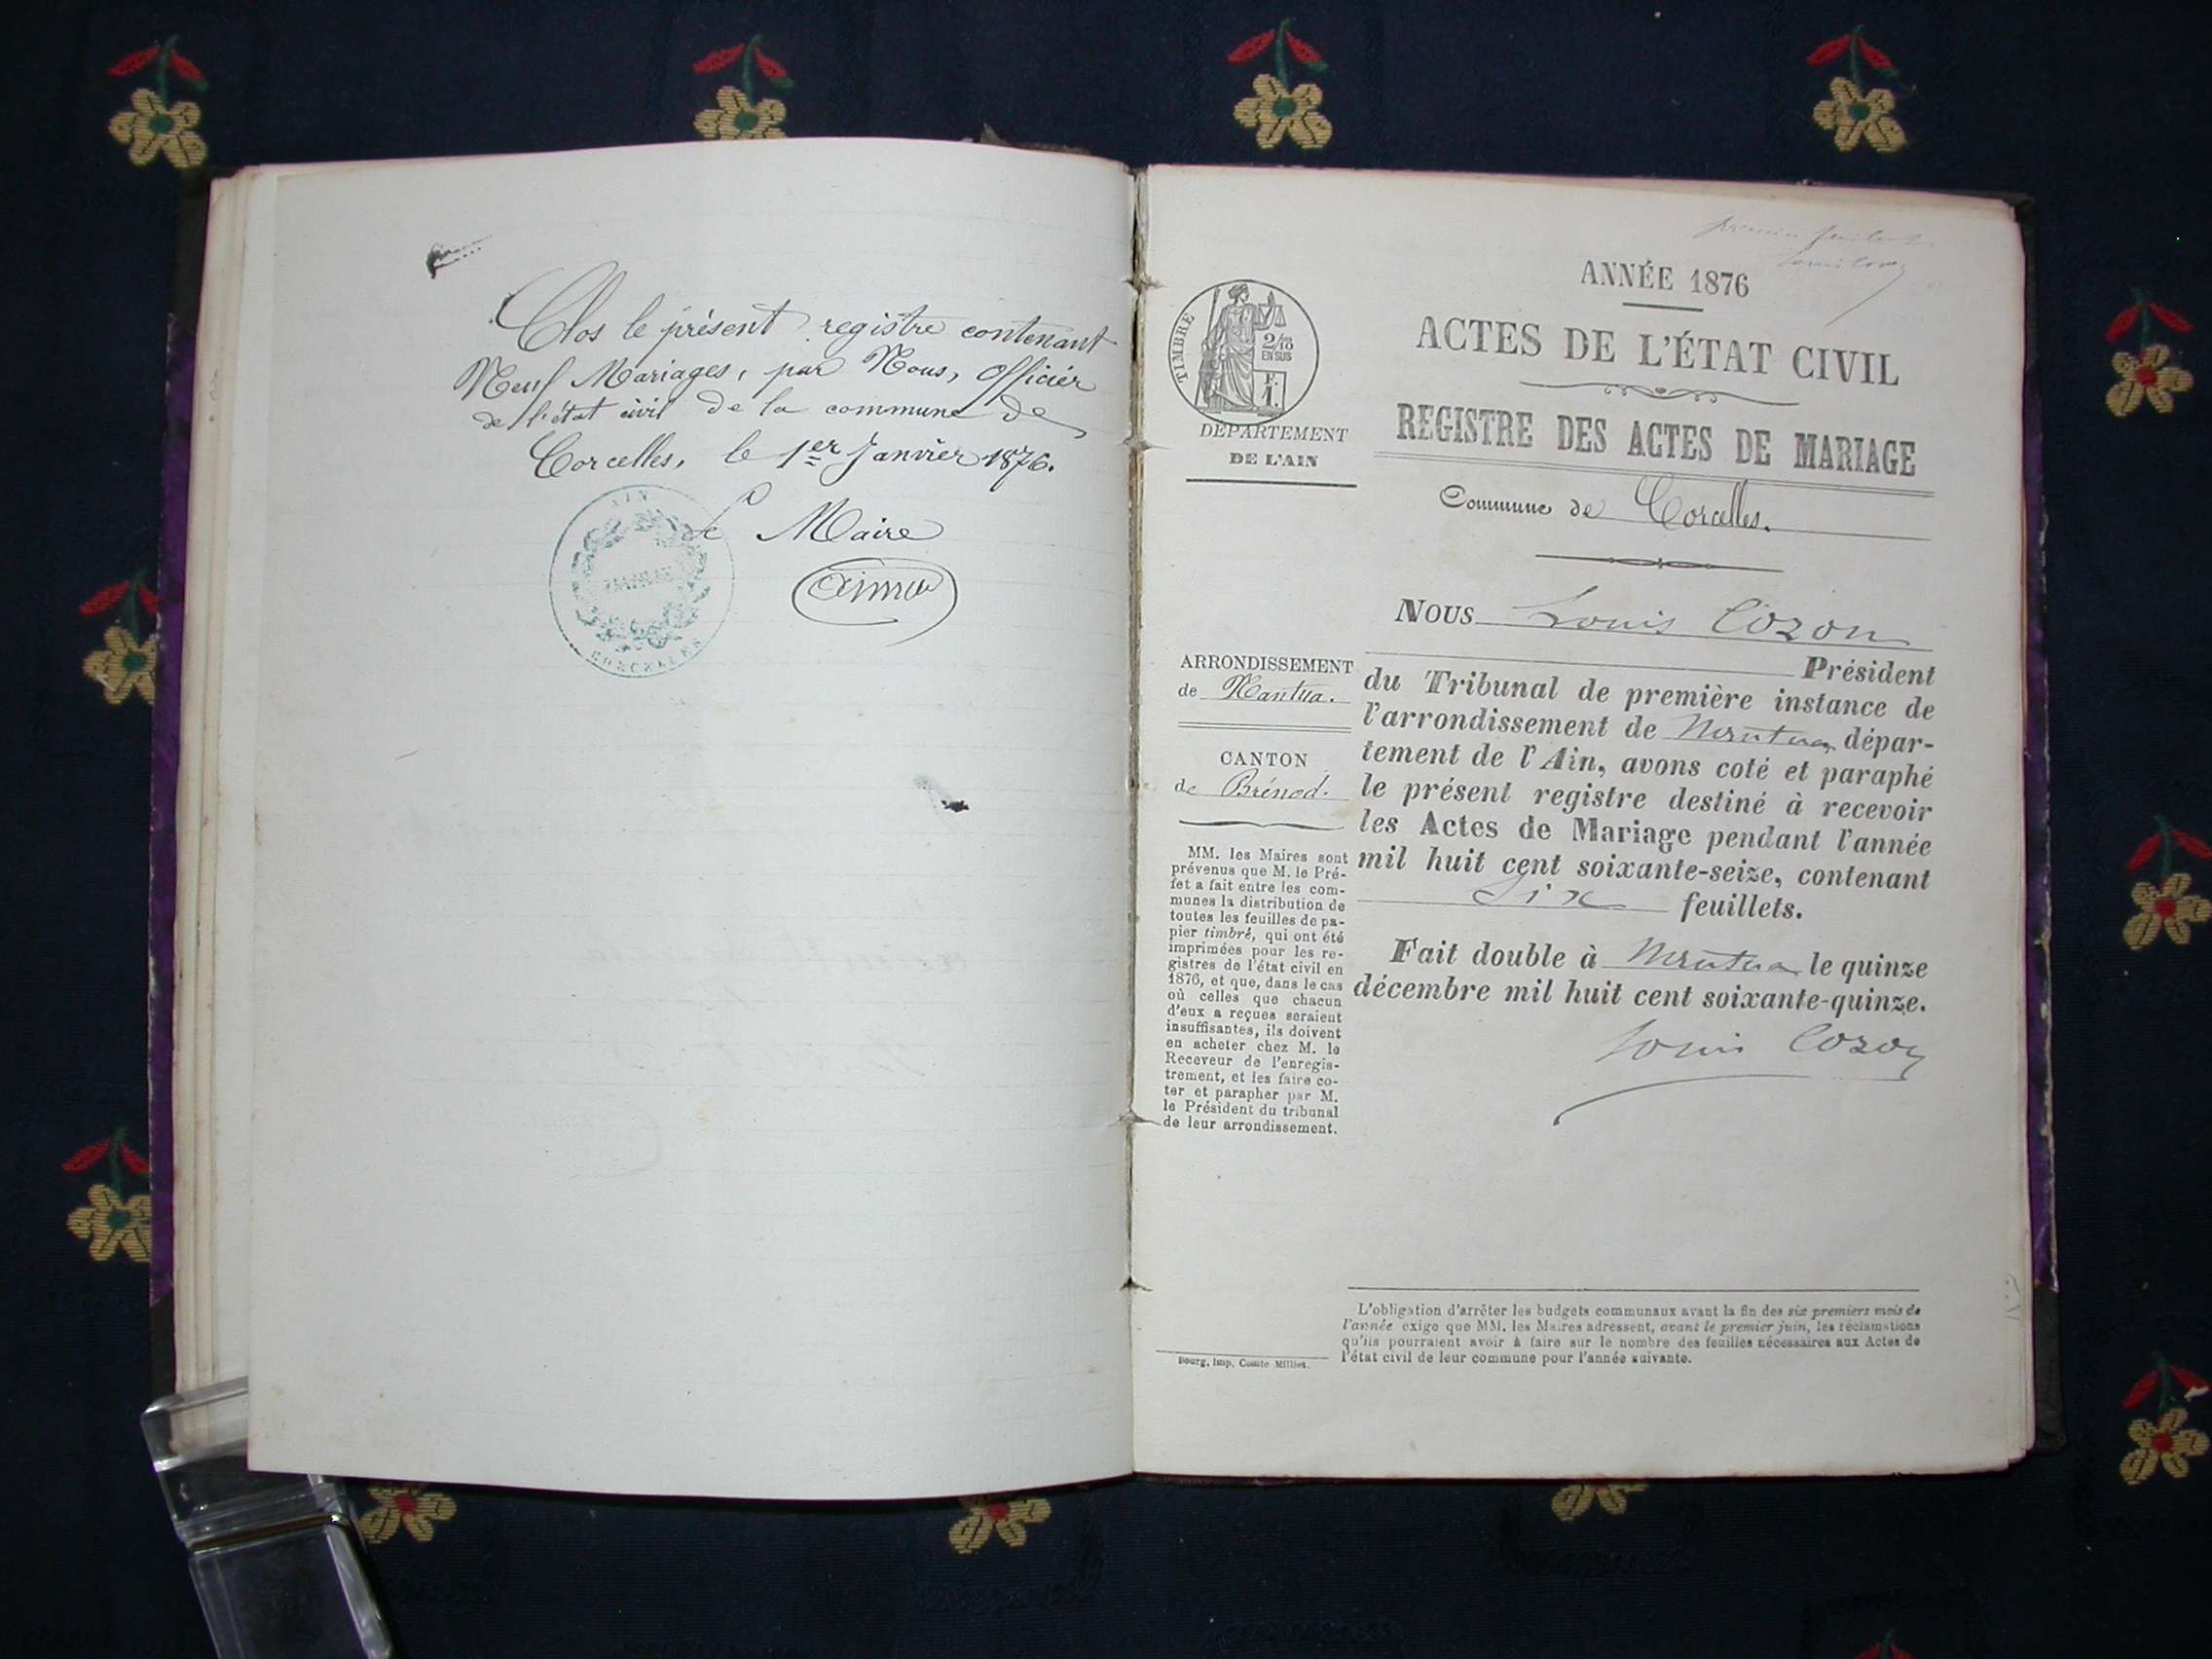 Clos le présent registre contenant
Neuf Mariages, par Nous, Officier
de l'état civil de la commune de
Corcelles, le 1er Janvier 1876.
Le Maire
AIN
CORCELLES
Louis Cozon
ANNÉE 1876
ACTES DE L'ÉTAT CIVIL
REGISTRE DES ACTES DE MARIAGE
Commune de Corcelles.
TIMBRE
2/10
EN SUS
F.
1.
DÉPARTEMENT
DE L'AIN
ARRONDISSEMENT
de Nantua.
CANTON
de Brénod.
MM. les Maires sont
prévenus que M. le Pré-
fet a fait entre les com-
munes la distribution de
toutes les feuilles de pa-
pier timbré, qui ont été
imprimées pour les re-
gistres de l'état civil en
1876, et que, dans le cas
où celles que chacun
d'eux a reçues seraient
insuffisantes, ils doivent
en acheter chez M. le
Receveur de l'enregis-
trement, et les faire co-
ter et parapher par M.
le Président du tribunal
de leur arrondissement.
NOUS Louis Cozon
Président
du Tribunal de première instance de
l'arrondissement de Nantua dépar-
tement de l'Ain, avons coté et paraphé
le présent registre destiné à recevoir
les Actes de Mariage pendant l'année
mil huit cent soixante-seize, contenant
Six feuillets.
Fait double à Nantua le quinze
décembre mil huit cent soixante-quinze.
Louis Cozon
L'obligation d'arrêter les budgets communaux avant la fin des six premiers mois de
l'année exige que MM. les Maires adressent, avant le premier juin, les réclamations
qu'ils pourraient avoir à faire sur le nombre des feuilles nécessaires aux Actes de
l'état civil de leur commune pour l'année suivante.
Bourg, Imp. Comte-Milliet.